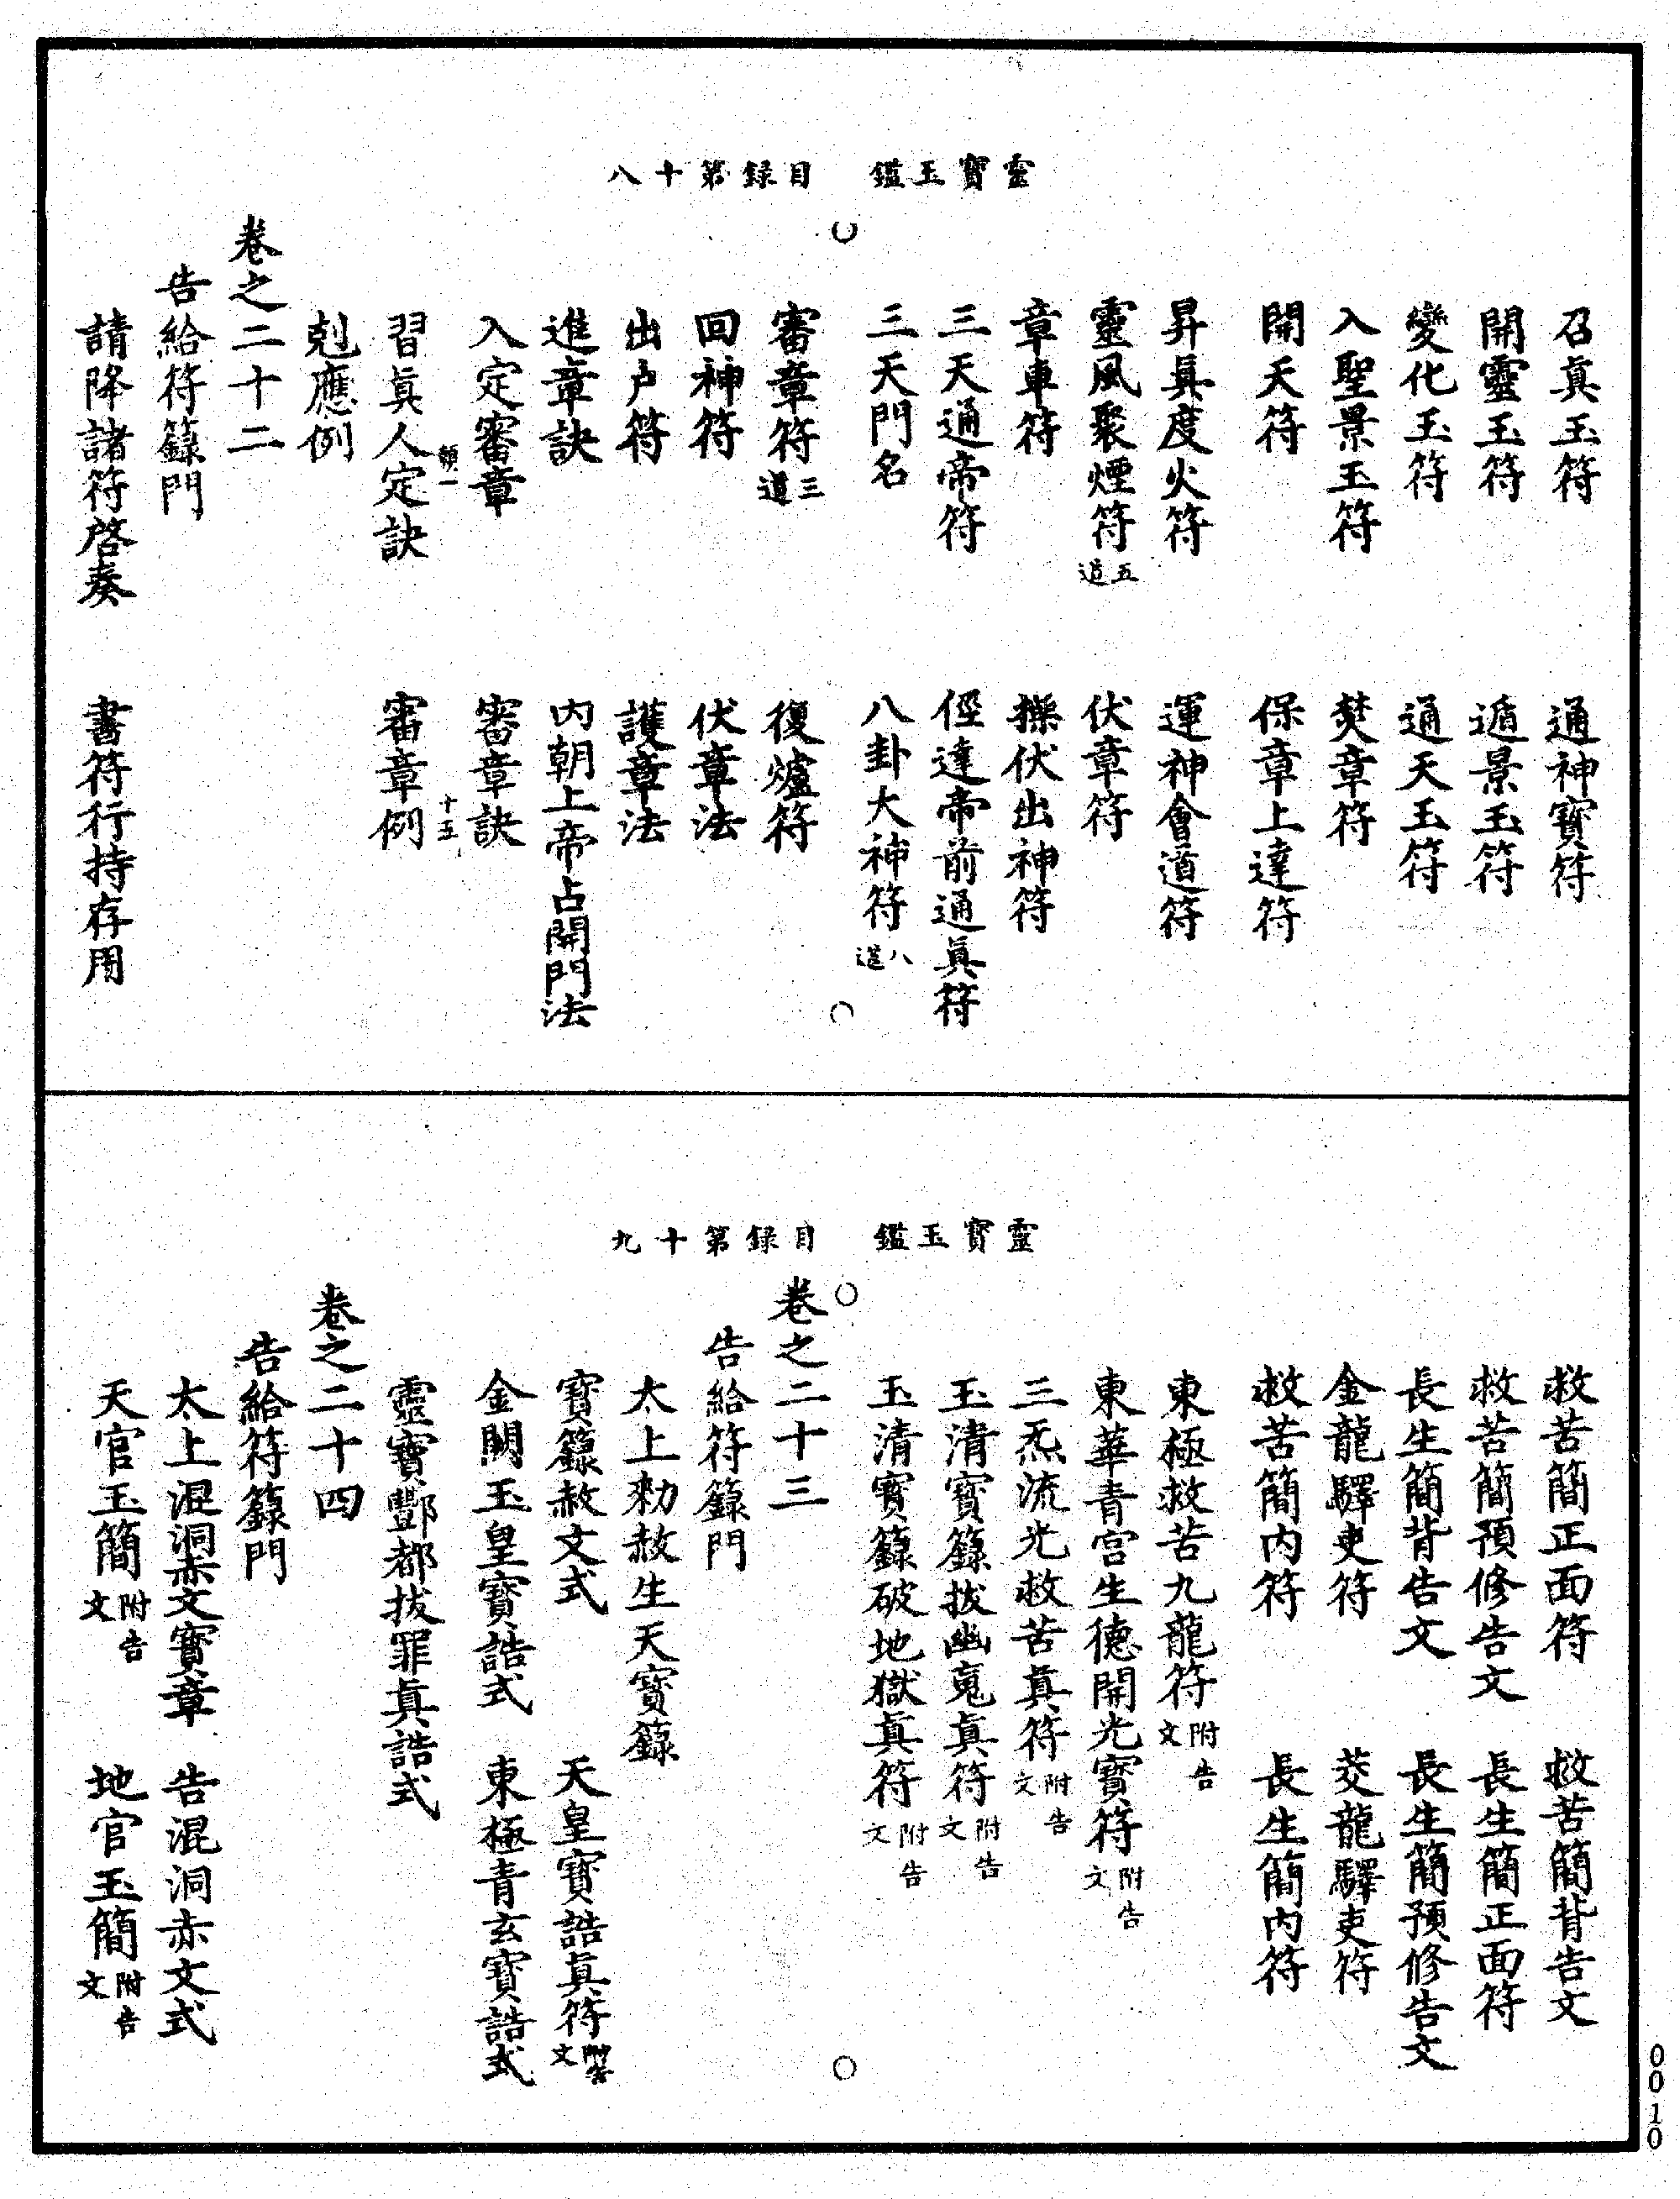 靈寶玉鑑　目録第十八
召真玉符　通神寶符
開靈玉符　遁景玉符
變化玉符　通天玉符
入聖景玉符　焚章符
開天符　保章上達符
昇真度火符　運神會道符
靈風聚煙符五道　伏章符
章車符　操伏出神符
三天通帝符　徑達帝前通真符
三天門名　八卦大神符八道
審章符三道　復爐符
回神符　伏章法
出户符　護章法
進章訣　内朝上帝占開門法
入定審章　審章訣
領一　十五
習真人定訣　審章例
剋應例
卷之二十二
告給符籙門
請降諸符啓奏　書符行持存用
靈寶玉鑑　目録第十九
救苦簡正面符　救苦簡背告文
救苦簡預修告文　長生簡正面符
長生簡背告文　長生簡預修告文
金龍驛吏符　茭龍驛吏符
救苦簡内符　長生簡内符
東極救苦九龍符附告文
東華青宫生德開光寶符附告文
三炁流光救苦真符附告文
玉清寶籙拔幽䰟真符附告文
玉清寶籙破地獄真符附告文
卷之二十三
告給符籙門
太上勑赦生天寶籙
寶籙赦文式　天皇寶誥真符附告文
金闕玉皇寶誥式　東極青玄寶誥式
靈寶酆都拔罪真誥式
卷之二十四
告給符籙門
太上混洞赤文寶章　告混洞赤文式
天官玉簡附告文　地官玉簡附告文
0010